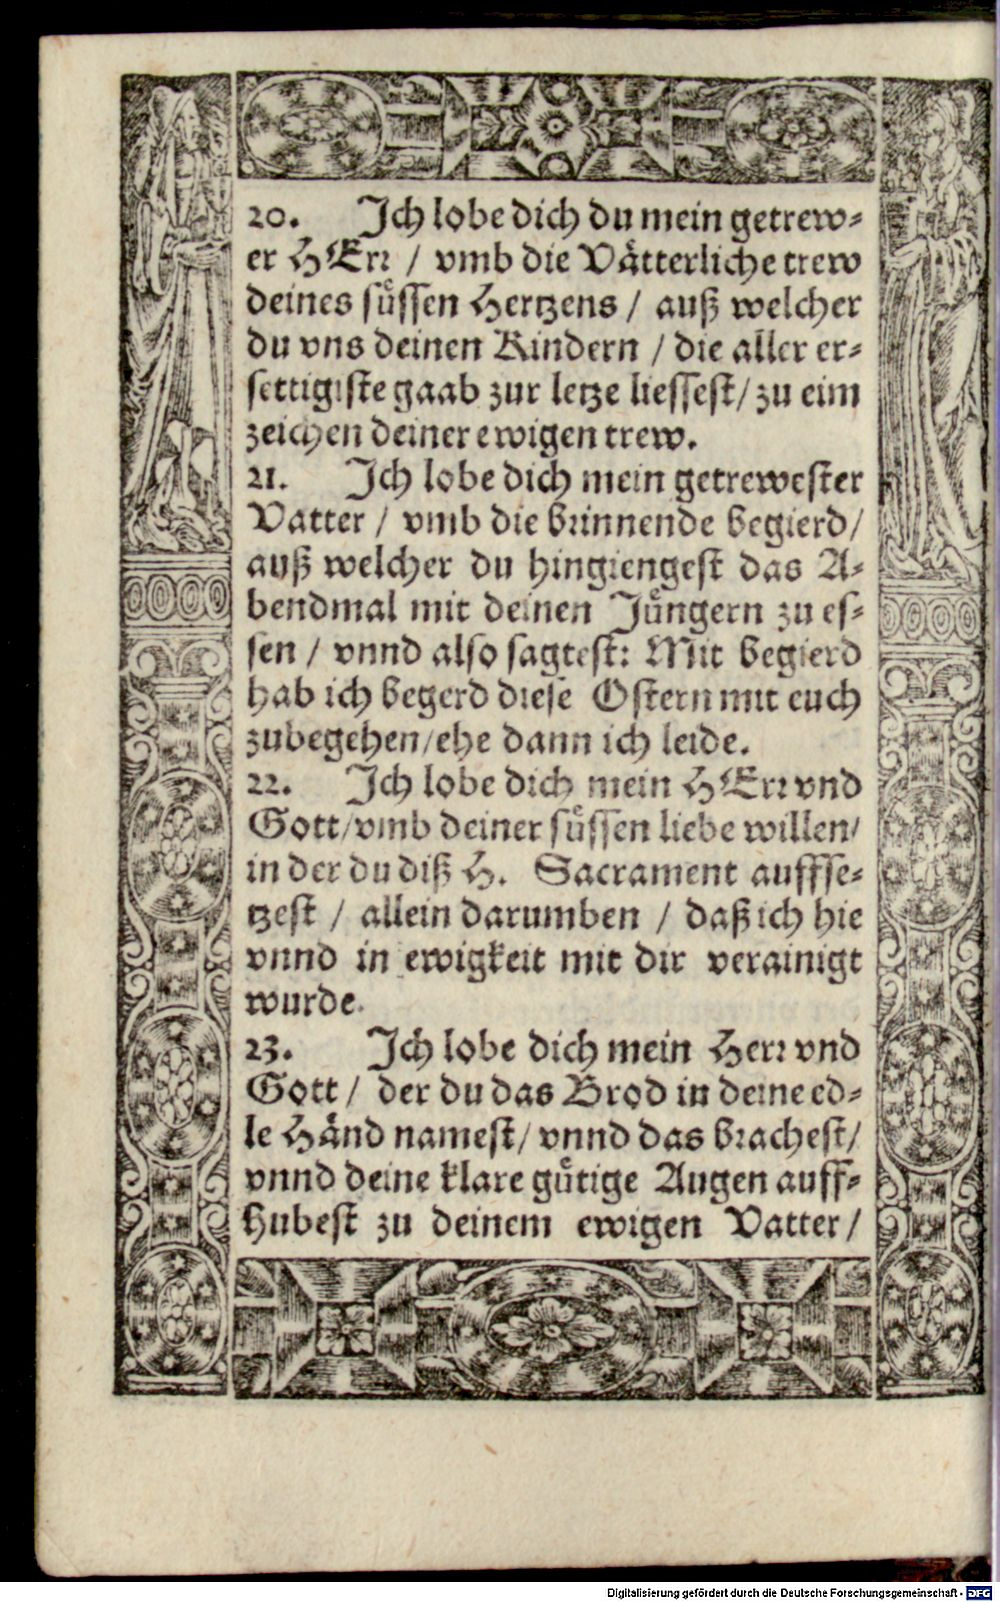 20. Ich lobe dich du mein getrew-
er HErr / vmb die Vätterliche trew
deines süssen Hertzens / auß welcher
du vns deinen Kindern / die aller er-
settigiste gaab zur letze liessest / zu eim
zeichen deiner ewigen trew.
21. Ich lobe dich mein getrewester
Vatter / vmb die brinnende begierd /
auß welcher du hingiengest das A-
bendmal mit deinen Jüngern zu es-
sen / vnnd also sagtest: Mit begierd
hab ich begerd diese Ostern mit euch
zubegehen / ehe dann ich leide.
22. Ich lobe dich mein HErr vnd
Gott / vmb deiner süssen liebe willen /
in der du diß H. Sacrament auffse-
tzest / allein darumben / daß ich hie
vnnd in ewigkeit mit dir verainigt
wurde.
23. Ich lobe dich mein Herr vnd
Gott / der du das Brod in deine ed-
le Händ namest / vnnd das brachest /
vnnd deine klare gütige Augen auff-
hubest zu deinem ewigen Vatter /
Digitalisierung gefördert durch die Deutsche Forschungsgemeinschaft - DFG